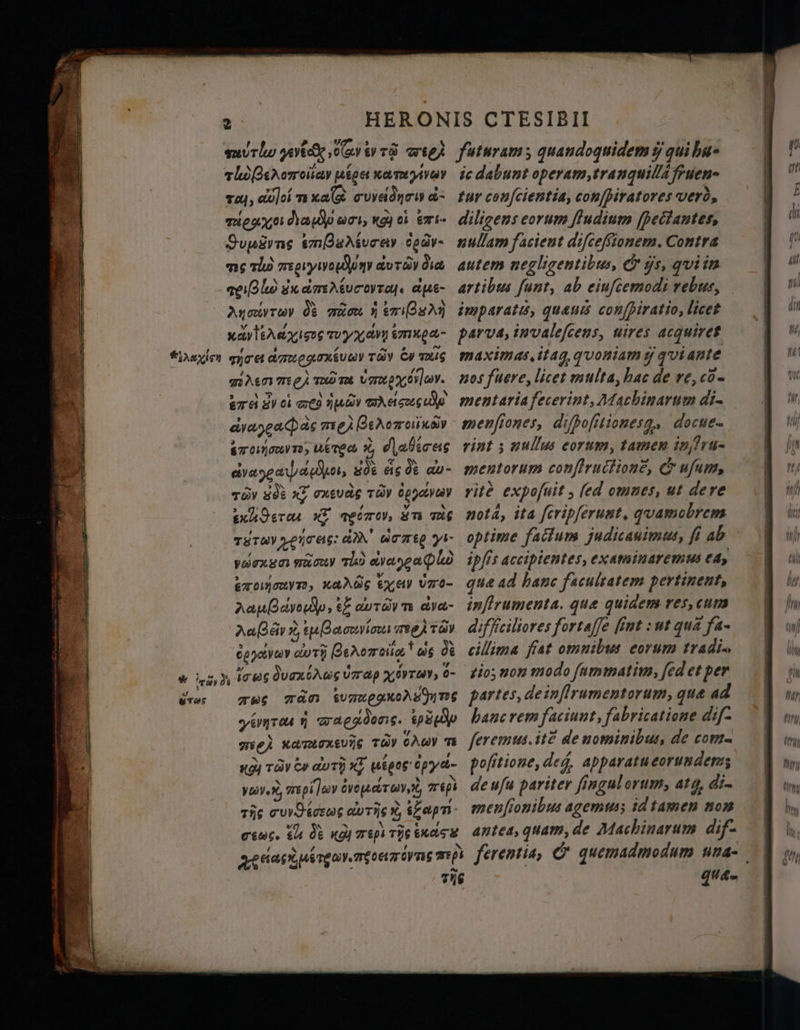 2
HERONIS CTESIBII
ταύτlω γενέσθ, ὅταν ἐν τῷ περὶ
τlω βελοποιΐαν μέρει καταγίνων
ται, αὐτοί τε κατὰ συνείδησιν ἀ-
τάραχοι διαμένωσι, καὶ οἱ ἐπι-
θυμοῦντες ἐπιβουλεύσειν ὁρῶν-
τες τlὼ περιγινομένην αὐτῶν διὰ
τριβlὼ οὐκ ἀπελεύσονται. ἀμε-
λησάντων δὲ πᾶσα ἡ ἐπιβουλὴ
κἂν ἐλάχιστος τυγχάνῃ ἐπικρα-
τήσει ἀπαρασκεύων τῶν ἐν ταῖς
πόλεσι περὶ ταῦτα ὑπαρχόντων.
ἐπεὶ οὖν οἱ πρὸ ἡμῶν πλείστους μὲν
ἀναγραφὰς περὶ βελοποιϊκῶν
ἐποιήσαντο, μέτρα καὶ διαθέσεις
ἀναγραψάμενοι, οὐδὲ εἷς δὲ αὐ-
τῶν οὐδὲ κατὰ σκευὰς τῶν ὀργάνων
ἐκτίθεται κατὰ τρόπον, οὔτε τὰς
τούτων χρήσεις: ἀλλ' ὥσπερ γι-
γνώσκουσι πᾶσιν τlὼ ἀναγραφlὼ
ἐποιήσαντο, καλῶς ἔχειν ὑπο-
λαμβάνομεν, ἐξ αὐτῶν τε ἀνα-
λαβεῖν καὶ ἐμφανίσαι περὶ τῶν
ὀργάνων αὐτῇ βελοποιΐα† ὡς δὲ
ἴσως δυσκόλως ὑπαρχόντων, ὅ-
πως πᾶσι εὐπαρακολούθητος
γένηται ἡ παράδοσις. ἐροῦμεν
περὶ κατασκευῆς τῶν ὅλων τε
καὶ τῶν ἐν αὐτῇ κατὰ μέρος ὀργά-
νων, καὶ περὶ τῶν ὀνομάτων, καὶ περὶ
τῆς συνθέσεως αὐτῆς καὶ ἐξαρτή-
σεως. ἔτι δὲ καὶ περὶ τῆς ἑκάστου
χρείας καὶ μέτρων. προειπόντες περὶ
τῆς
futuram; quandoquidem & qui hu-
ic dabunt operam, tranquillâ fruen-
tur conscientia, conspiratores verò,
diligens eorum studium spectantes,
nullam facient discessionem. Contra
autem negligentibus, & ijs, qui in
artibus sunt, ab eiuscemodi rebus,
imparatis, quamvis conspiratio, licet
parva, invalescens, vires acquiret
maximas. itaq, quoniam & qui ante
nos fuere, licet multa, hac de re, cō-
mentaria fecerint, Machinarum di-
mensiones, dispositionesq, docue-
rint; nullus eorum, tamen instru-
mentorum constructionē, & usum,
ritè exposuit, sed omnes, ut de re
notâ, ita scripserunt, quamobrem
optime factum judicavimus, si ab
ipsis accipientes, examinaremus ea,
quæ ad hanc facultatem pertinent,
instrumenta. quæ quidem res, cum
difficiliores fortasse sint: ut quā fa-
cillima fiat omnibus eorum tradi-
tio; non modo summatim, sed et per
partes, de instrumentorum, quæ ad
hanc rem faciunt, fabricatione dif-
feremus. itē de nominibus, de com-
positione, deq, apparatu eorundem;
de usu pariter singulorum, atq, di-
mensionibus agemus; id tamen non
antea, quam, de Machinarum dif-
ferentia, & quemadmodum una-
quæ-